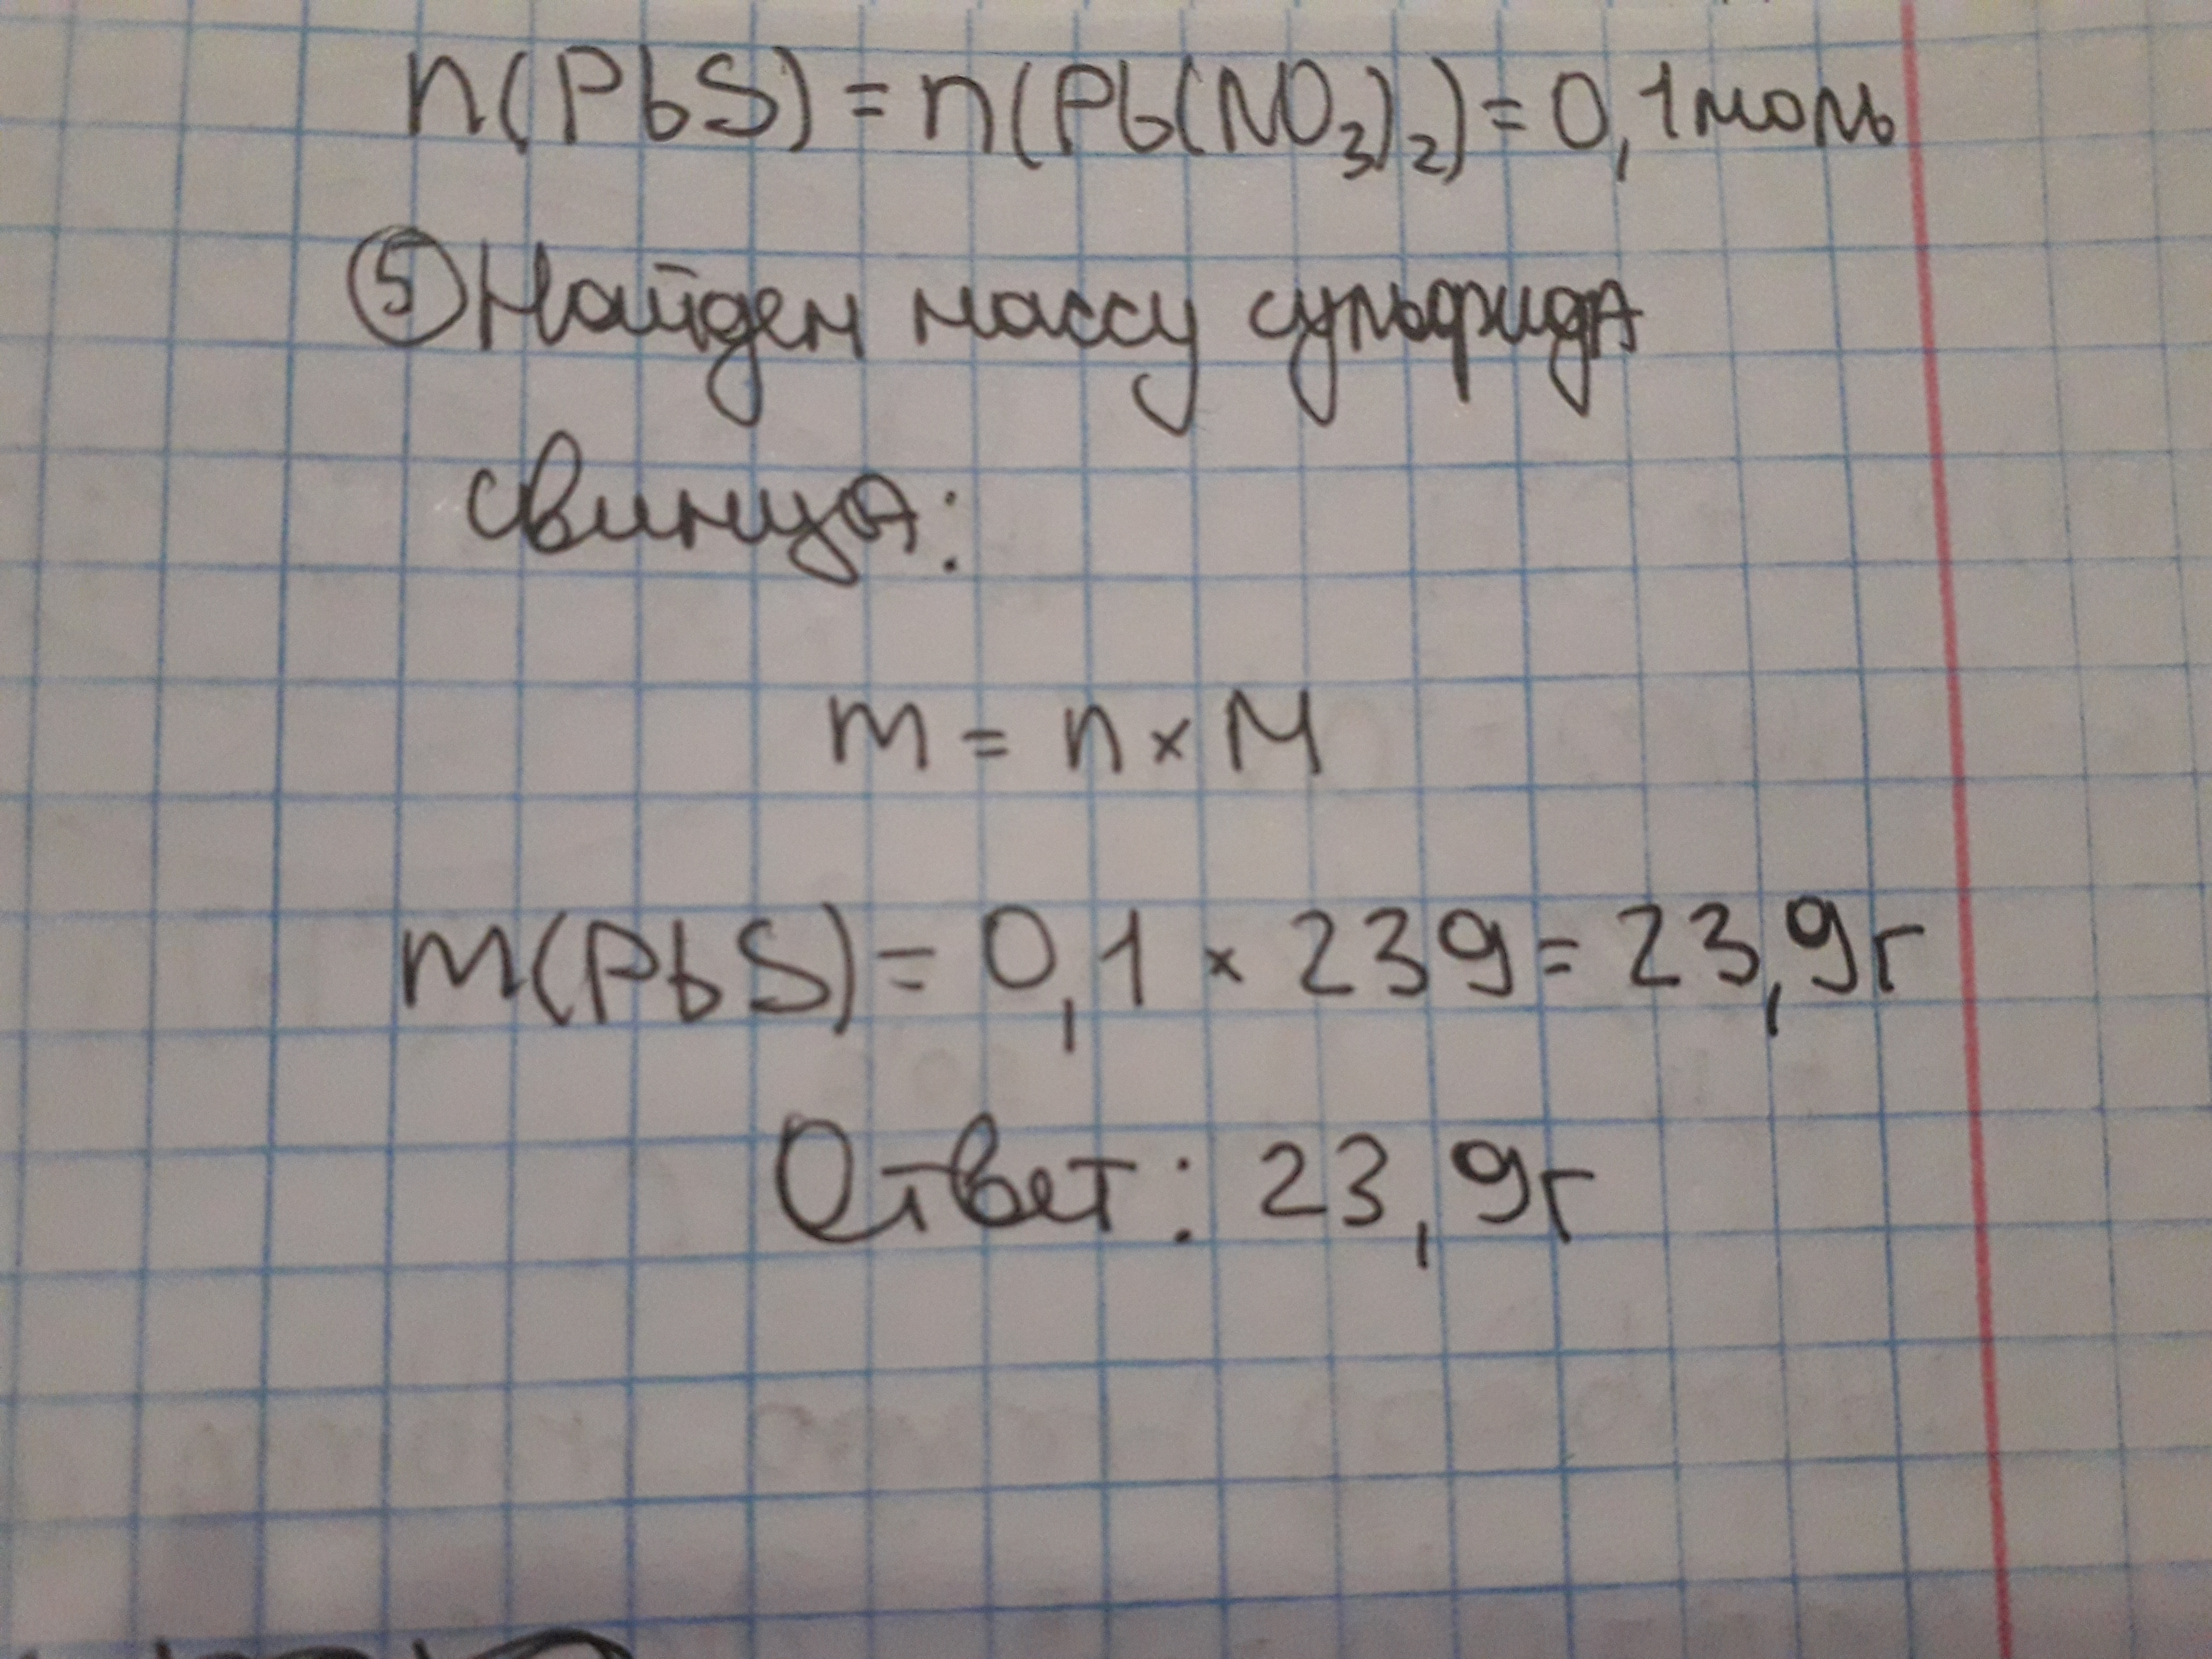 n(PbS) = n(Pb(NO₃)₂) = 0,1 моль
⑤ Найдем массу сульфида
свинца:
m = n × M
m(PbS) = 0,1 × 239 = 23,9г
Ответ: 23,9г